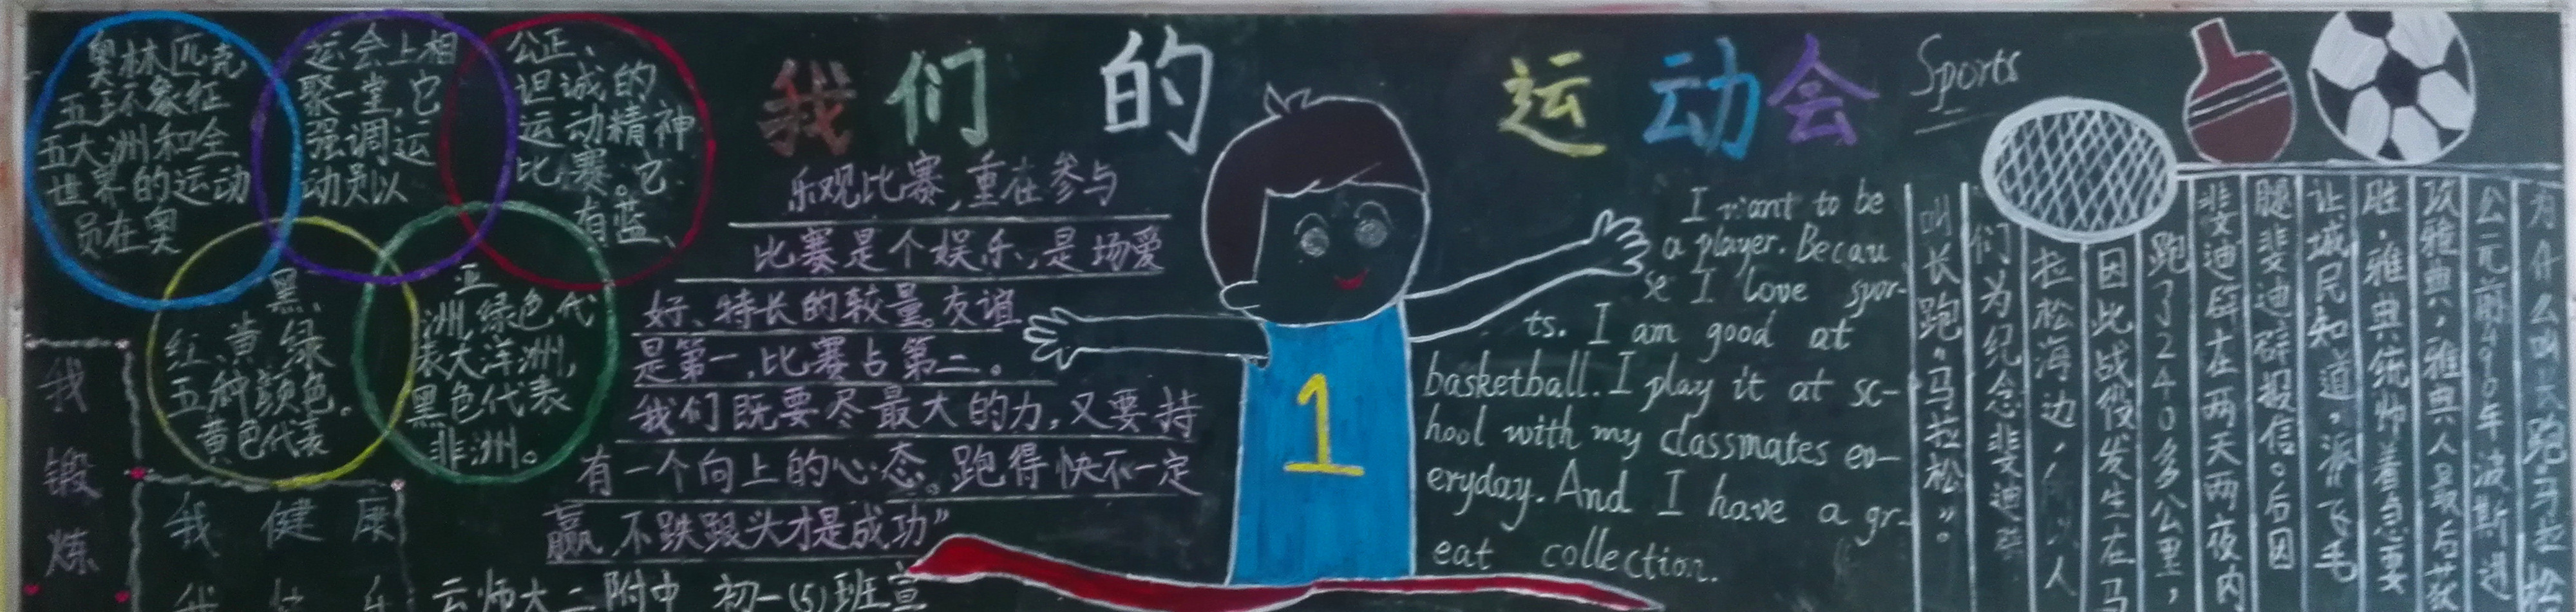 我们的运动会
Sports
奥林匹克
五环象征
五大洲和全
世界的运动
员在奥
运会上相
聚一堂,它
强调运
动员以
公正、
坦诚的
运动精神
比赛。它
有蓝、
黑、
红、黄、绿
五种颜色。
黄色代表
亚
洲,绿色代
表大洋洲,
黑色代表
非洲。
我锻炼
我健康
乐观比赛,重在参与
比赛是个娱乐,是场爱
好、特长的较量。友谊
是第一,比赛占第二。
我们既要尽最大的力,又要持
有一个向上的心态。跑得快不一定
赢,不跌跟头才是成功”
云师大二附中 初一(5)班宣
1
I want to be
a player. Becau
se I love spor-
ts. I am good at
basketball. I play it at sc-
hool with my classmates ev-
eryday. And I have a gr-
eat collection.
为什么叫长跑马拉松
公元前490年波斯进
攻雅典,雅典人最后获
胜.雅典统帅着急要
让城民知道,派飞毛
腿斐迪辟报信。后因
斐迪辟在两天两夜内
跑了240多公里,
因此战役发生在马
拉松海边,人
们为纪念斐迪辟
叫长跑“马拉松”。